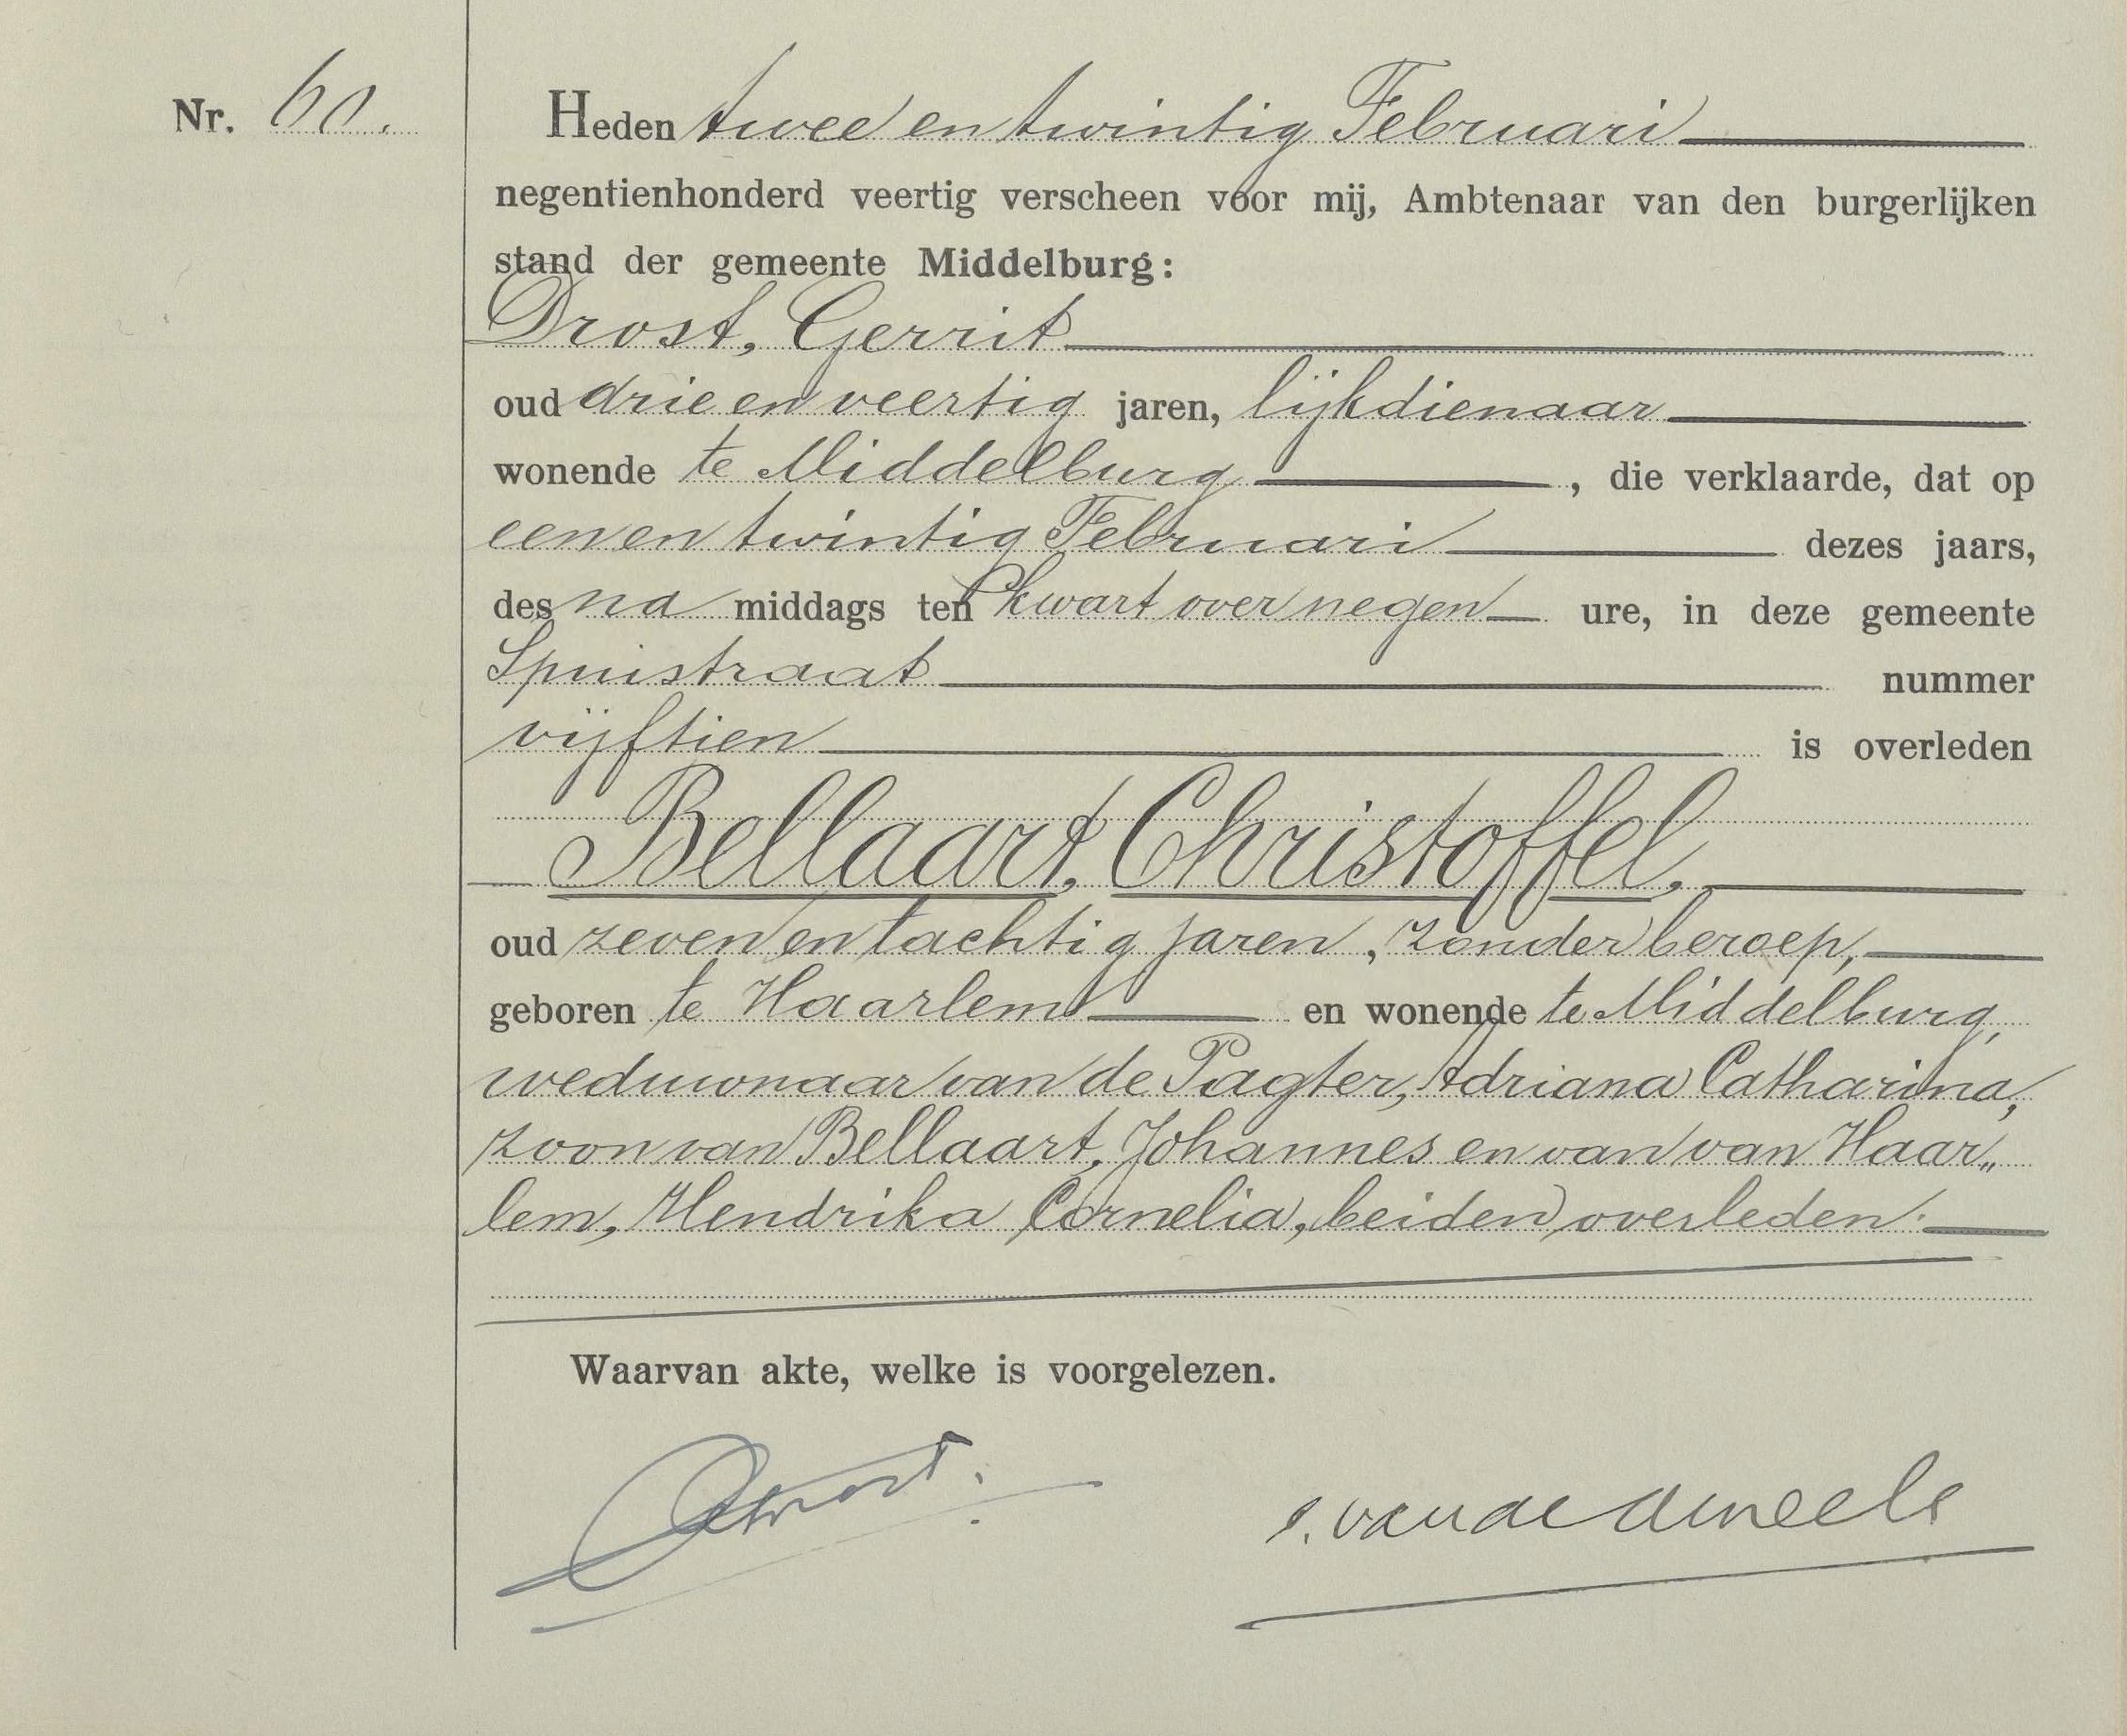 Nr. 60.
Heden twee en twintig Februari
negentienhonderd veertig verscheen voor mij, Ambtenaar van den burgerlijken
stand der gemeente Middelburg:
Drost, Gerrit
oud drie en veertig jaren, lijkdienaar
wonende te Middelburg, die verklaarde, dat op
een en twintig Februari dezes jaars,
des na middags ten kwart over negen ure, in deze gemeente
Spuistraat nummer
vijftien is overleden
Bellaart, Christoffel,
oud zeven en tachtig jaren, zonder beroep,
geboren te Haarlem en wonende te Middelburg,
weduwnaar van de Pagter, Adriana Catharina,
zoon van Bellaart, Johannes en van van Haar„
lem, Hendrika Cornelia, beiden overleden.
Waarvan akte, welke is voorgelezen.
Drost.